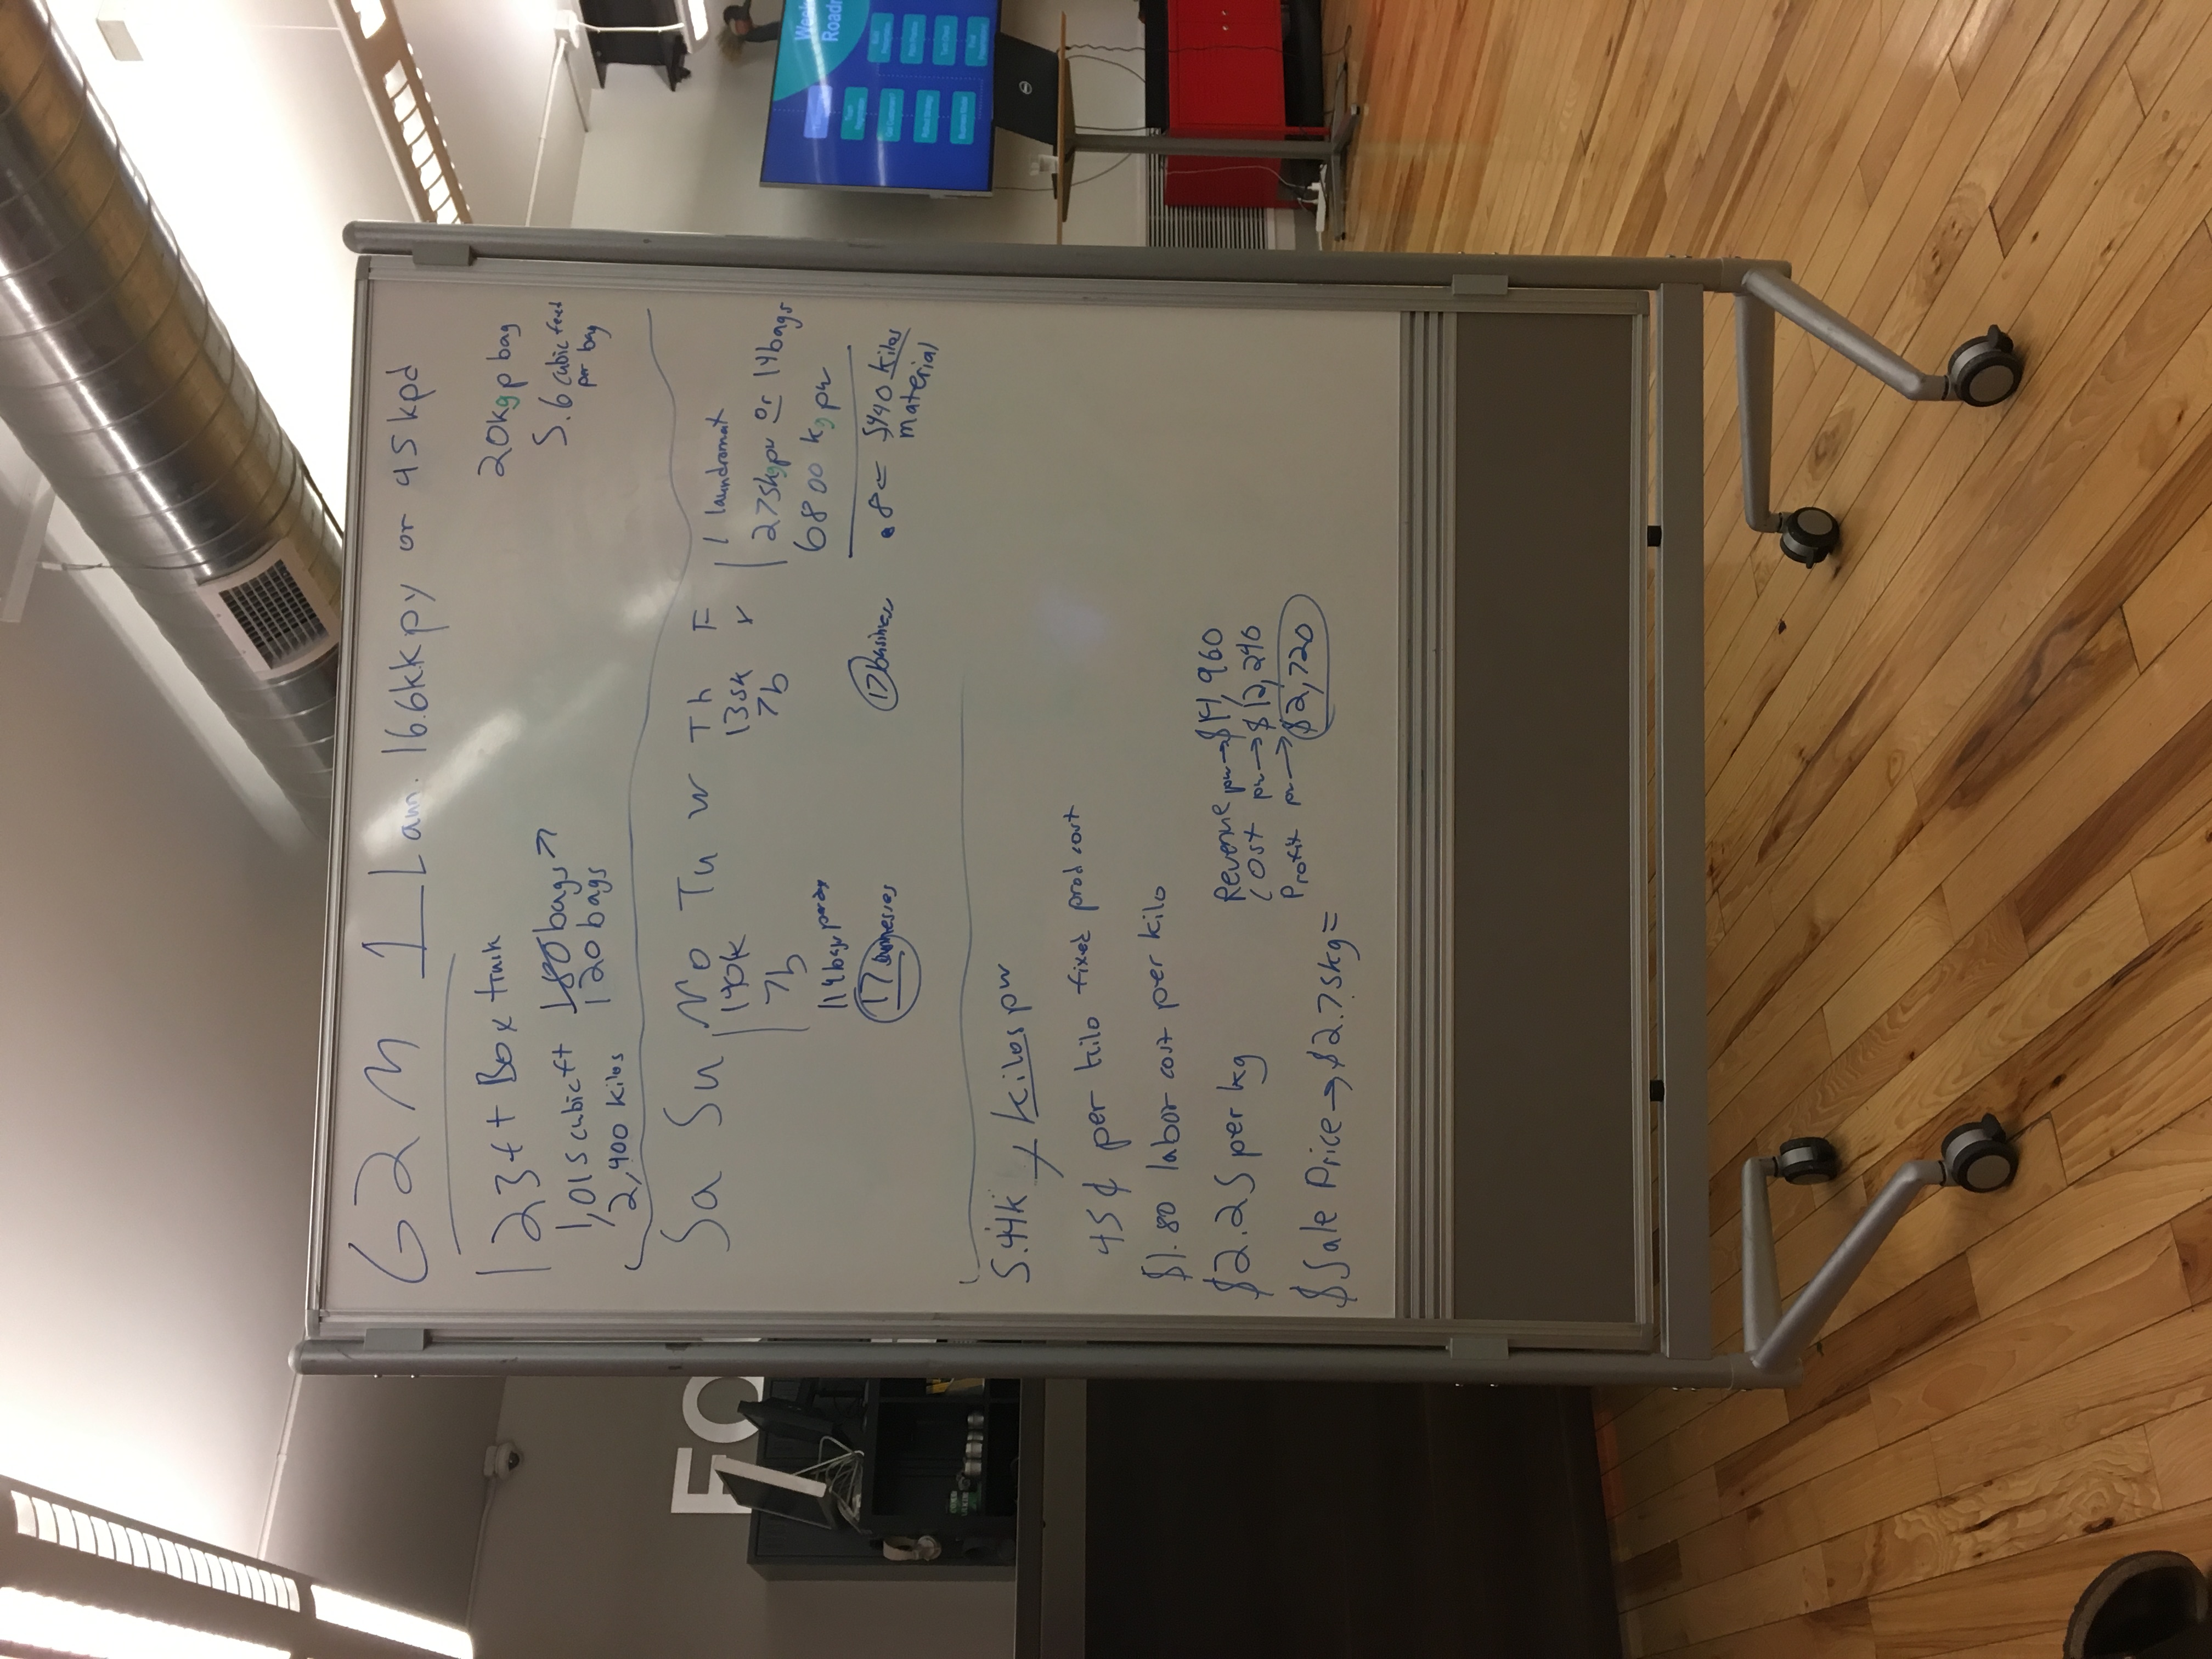 G2M 1 Laun. 16.6kkpy or 45kpd
23ft Box truck
1,015 cubic ft 180bags
2,400 kilos 120 bags
20kgp bag
5.6 cubic feet
per bag
Sa Su Mo Tu W Th F
140k 135k
7b 7b
114bags per day
17 businesses
17 business
1 laundromat
275kgpw or 14bags
6800 kgpw
.8 = 5440 kilos
material
5.44k kilos pw
45¢ per kilo fixed prod cost
$1.80 labor cost per kilo
$2.25 per kg
$Sale Price → $2.75kg =
Revenue pw → $14,960
Cost pw → $12,240
Profit pw → $2,720
Roadm
EC